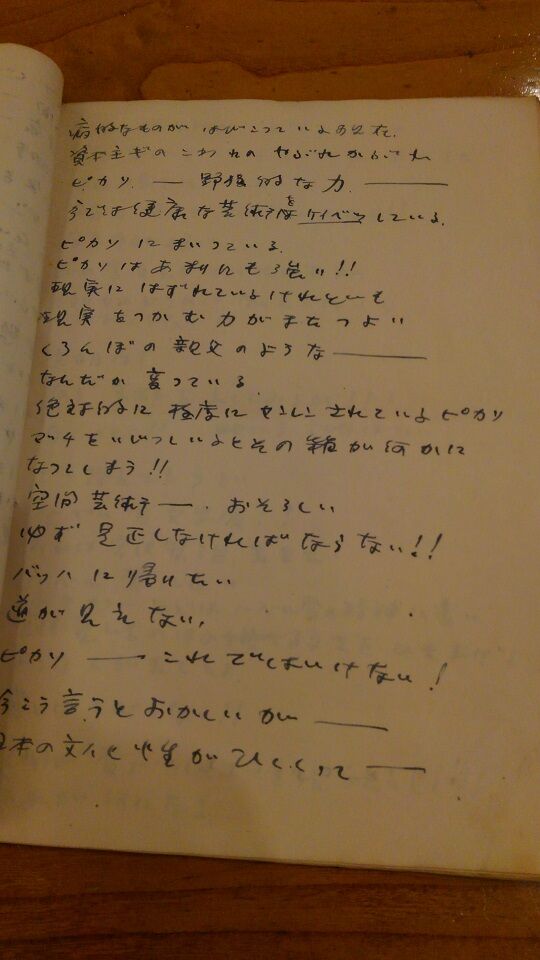 病的なものがはびこっている現在.
資本主ギのこわれのやぶれかぶれ
ピカソ. — 野獣的な力. ——
今では健康な芸術をケイベツしている.
ピカソにまいっている.
ピカソはあまりにも強い!!
現実にはずれているけれども
現実をつかむ力がまたつよい
くろんぼの親父のような——
なんだか言っている
絶対的に極度にされているピカソ
マッチをいじっているとその箱が何かに
なってしまう!!
空間芸術—. おそろしい
必ず是正しなければならない!!
バッハに帰りたい
道が見えない.
ピカソ — これではいけない!
今こう言うとおかしいが——
日本の文化と性がひくくって—